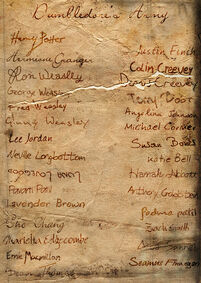 Dumbledore's Army
Harry Potter
Hermione Granger
Ron Weasley
George Weasley
Fred Weasley
Ginny Weasley
Lee Jordan
Neville Longbottom
Luna Lovegood
Parvati Patil
Lavender Brown
Cho Chang
Marietta Edgecombe
Ernie Macmillan
Dean Thomas
Justin Finch
Colin Creevey
Dennis Creevey
Terry Boot
Angelina Johnson
Michael Corner
Susan Bones
Katie Bell
Hannah Abbott
Anthony Goldstein
Padma Patil
Zach Smith
Seamus Finnigan